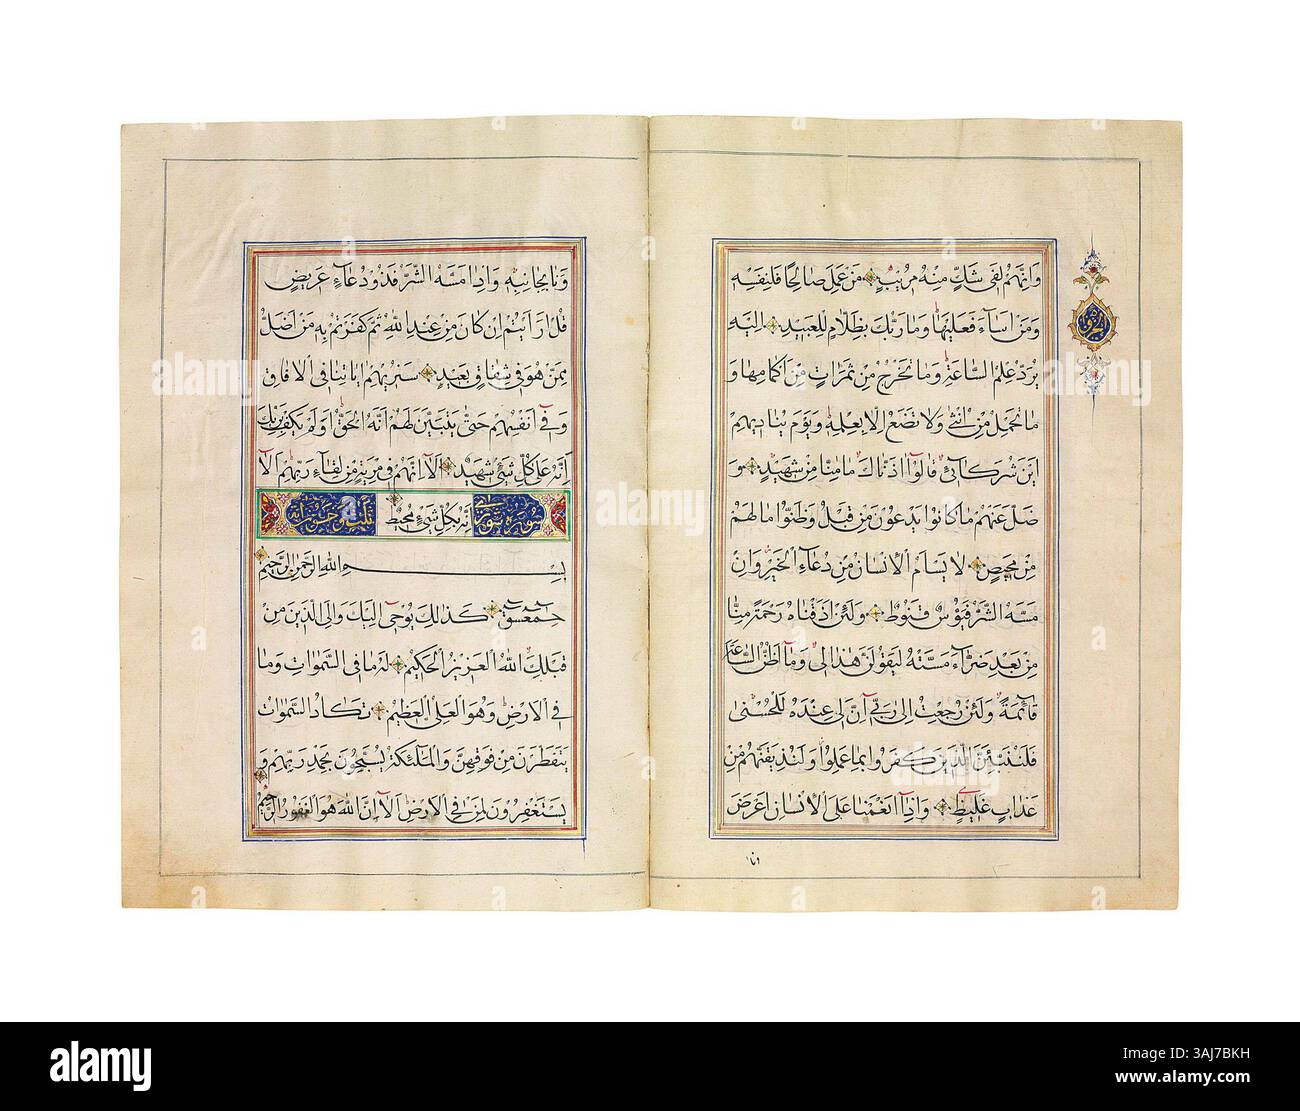 وَاِنَّهُمْ لَفِى شَكٍّ مِنْهُ مُرِيبٍ مَنْ عَمِلَ صَالِحًا فَلِنَفْسِهِ
وَمَنْ اَسَآءَ فَعَلَيْهَا وَمَا رَبُّكَ بِظَلَّامٍ لِلْعَبِيدِ اِلَيْهِ
يُرَدُّ عِلْمُ السَّاعَةِ وَمَا تَخْرُجُ مِنْ ثَمَرَاتٍ مِنْ اَكْمَامِهَا وَ
مَا تَحْمِلُ مِنْ اُنْثَى وَلَا تَضَعُ اِلَّا بِعِلْمِهِ وَيَوْمَ يُنَادِيهِمْ
اَيْنَ شُرَكَآئِى قَالُوا اٰذَنَّاكَ مَا مِنَّا مِنْ شَهِيدٍ وَ
ضَلَّ عَنْهُمْ مَا كَانُوا يَدْعُونَ مِنْ قَبْلُ وَظَنُّوا مَا لَهُمْ
مِنْ مَحِيصٍ لَا يَسْاَمُ الْاِنْسَانُ مِنْ دُعَآءِ الْخَيْرِ وَاِنْ
مَسَّهُ الشَّرُّ فَيَؤُسٌ قَنُوطٌ وَلَئِنْ اَذَقْنَاهُ رَحْمَةً مِنَّا
مِنْ بَعْدِ ضَرَّآءَ مَسَّتْهُ لَيَقُولَنَّ هٰذَا لِى وَمَآ اَظُنُّ السَّاعَةَ
قَآئِمَةً وَلَئِنْ رُجِعْتُ اِلَى رَبِّى اِنَّ لِى عِنْدَهُ لَلْحُسْنَى
فَلَنُنَبِّئَنَّ الَّذِينَ كَفَرُوا بِمَا عَمِلُوا وَلَنُذِيقَنَّهُمْ مِنْ
عَذَابٍ غَلِيظٍ وَاِذَآ اَنْعَمْنَا عَلَى الْاِنْسَانِ اَعْرَضَ
وَنَا
وَنَا بِجَانِبِهِ وَاِذَا مَسَّهُ الشَّرُّ فَذُو دُعَآءٍ عَرِيضٍ
قُلْ اَرَاَيْتُمْ اِنْ كَانَ مِنْ عِنْدِ اللّٰهِ ثُمَّ كَفَرْتُمْ بِهِ مَنْ اَضَلُّ
مِمَّنْ هُوَ فِى شِقَاقٍ بَعِيدٍ سَنُرِيهِمْ اٰيَاتِنَا فِى الْاٰفَاقِ
وَفِىٓ اَنْفُسِهِمْ حَتَّى يَتَبَيَّنَ لَهُمْ اَنَّهُ الْحَقُّ اَوَلَمْ يَكْفِ بِرَبِّكَ
اَنَّهُ عَلَى كُلِّ شَىْءٍ شَهِيدٌ اَلَآ اِنَّهُمْ فِى مِرْيَةٍ مِنْ لِقَآءِ رَبِّهِمْ اَلَآ
سورة شورى اِنَّهُ بِكُلِّ شَىْءٍ مُحِيطٌ
بِسْمِ اللّٰهِ الرَّحْمٰنِ الرَّحِيمِ
حٰمٓ عٓسٓقٓ كَذٰلِكَ يُوحِىٓ اِلَيْكَ وَاِلَى الَّذِينَ مِنْ
قَبْلِكَ اللّٰهُ الْعَزِيزُ الْحَكِيمُ لَهُ مَا فِى السَّمٰوَاتِ وَمَا
فِى الْاَرْضِ وَهُوَ الْعَلِىُّ الْعَظِيمُ تَكَادُ السَّمٰوَاتُ
يَتَفَطَّرْنَ مِنْ فَوْقِهِنَّ وَالْمَلٰٓئِكَةُ يُسَبِّحُونَ بِحَمْدِ رَبِّهِمْ وَ
يَسْتَغْفِرُونَ لِمَنْ فِى الْاَرْضِ اَلَآ اِنَّ اللّٰهَ هُوَ الْغَفُورُ الرَّحِيمُ
alamy
Image ID: 3AJ7BKH
www.alamy.com